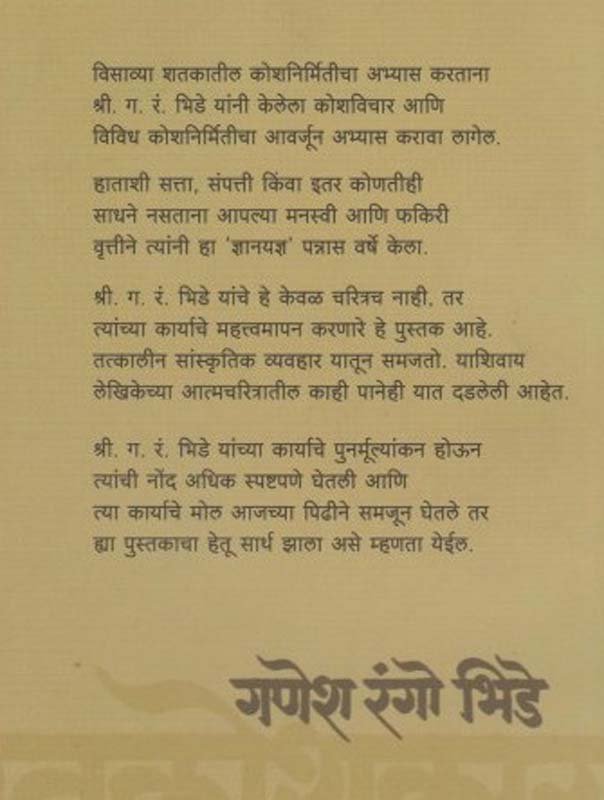 विसाव्या शतकातील कोशनिर्मितीचा अभ्यास करताना
श्री. ग. रं. भिडे यांनी केलेला कोशविचार आणि
विविध कोशनिर्मितीचा आवर्जून अभ्यास करावा लागेल.
हाताशी सत्ता, संपत्ती किंवा इतर कोणतीही
साधने नसताना आपल्या मनस्वी आणि फकिरी
वृत्तीने त्यांनी हा 'ज्ञानयज्ञ' पन्नास वर्षे केला.
श्री. ग. रं. भिडे यांचे हे केवळ चरित्रच नाही, तर
त्यांच्या कार्याचे महत्त्वमापन करणारे हे पुस्तक आहे.
तत्कालीन सांस्कृतिक व्यवहार यातून समजतो. याशिवाय
लेखिकेच्या आत्मचरित्रातील काही पानेही यात दडलेली आहेत.
श्री. ग. रं. भिडे यांच्या कार्याचे पुनर्मूल्यांकन होऊन
त्यांची नोंद अधिक स्पष्टपणे घेतली आणि
त्या कार्याचे मोल आजच्या पिढीने समजून घेतले तर
ह्या पुस्तकाचा हेतू सार्थ झाला असे म्हणता येईल.
गणेश रंगो भिडे